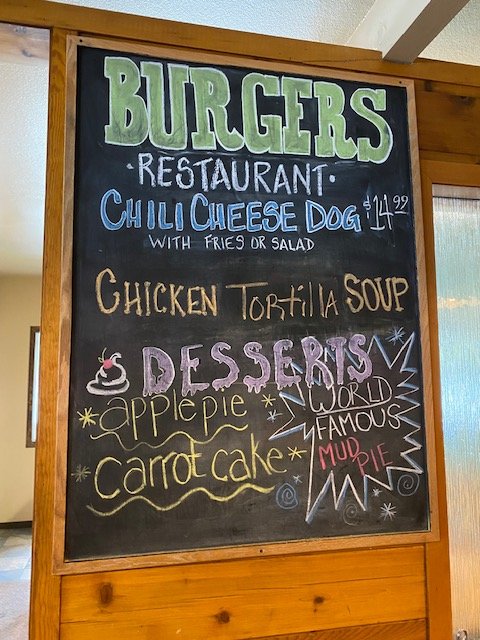 BURGERS
·RESTAURANT·
CHILI CHEESE DOG $14.99
WITH FRIES OR SALAD
CHICKEN TORTILLA SOUP
DESSERTS
apple pie
carrot cake
WORLD
FAMOUS
MUD PIE